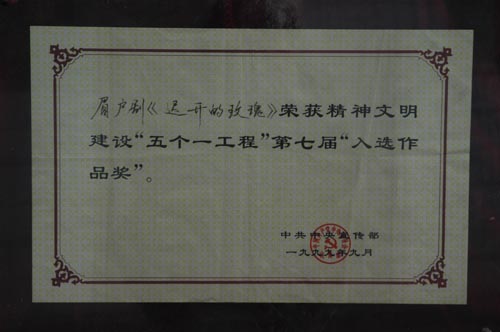 眉户剧《迟开的玫瑰》荣获精神文明
建设“五个一工程”第七届“入选作
品奖”。
中共中央宣传部
一九九九年九月